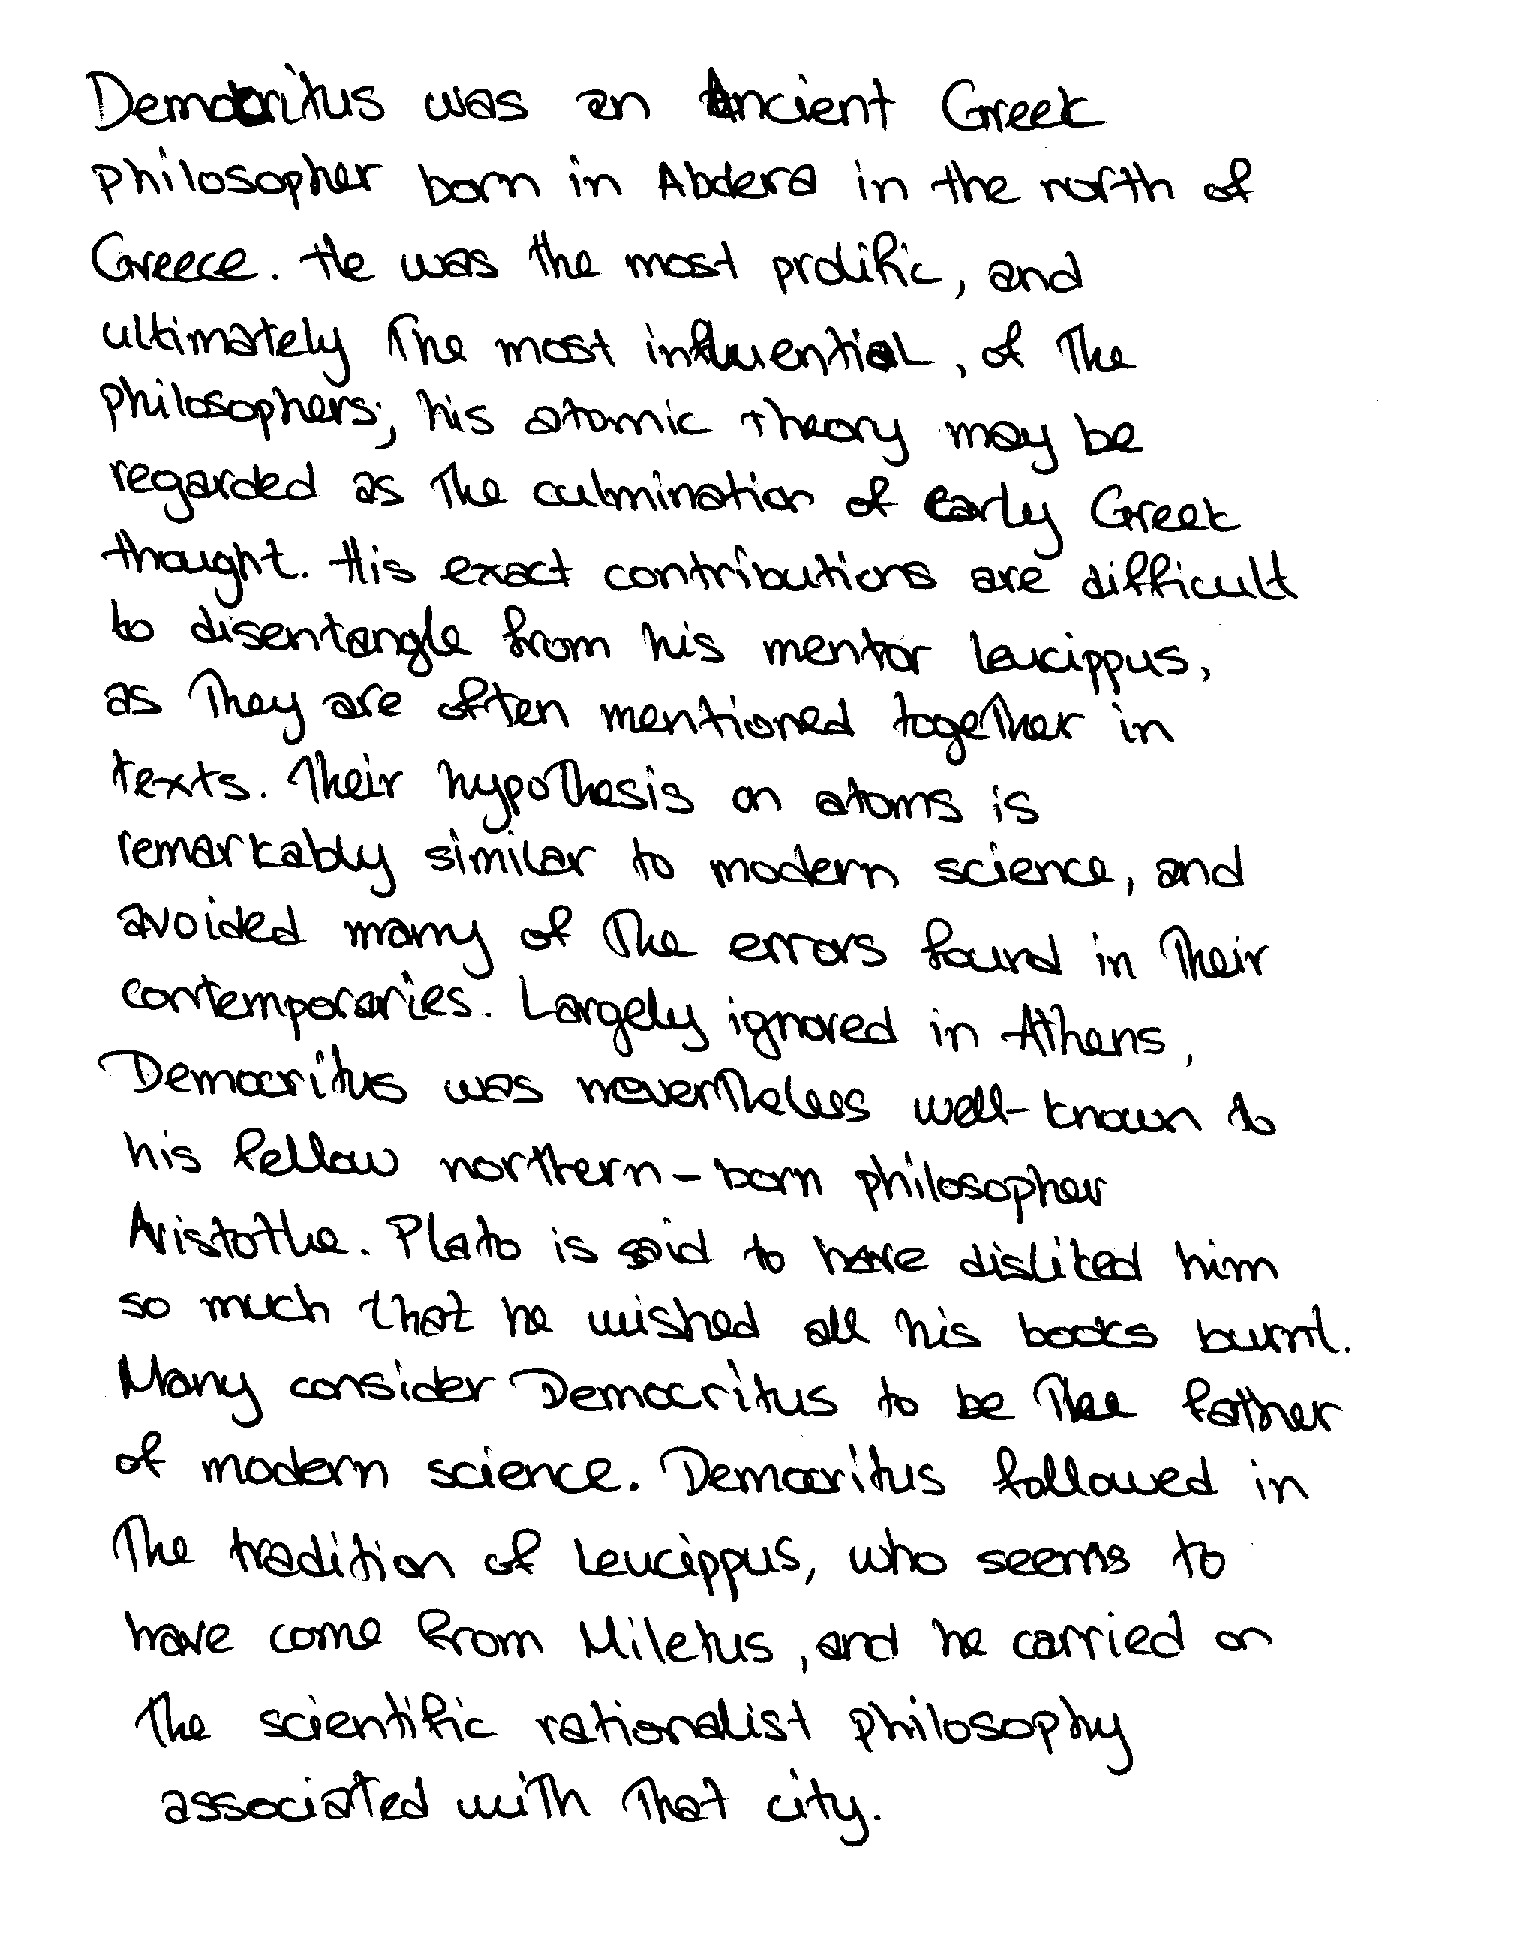 Democritus was an Ancient Greek
philosopher born in Abdera in the north of
Greece. He was the most prolific, and
ultimately the most influential, of the
philosophers; his atomic theory may be
regarded as the culmination of early Greek
thought. His exact contributions are difficult
to disentangle from his mentor Leucippus,
as they are often mentioned together in
texts. Their hypothesis on atoms is
remarkably similar to modern science, and
avoided many of the errors found in their
contemporaries. Largely ignored in Athens,
Democritus was nevertheless well-known to
his fellow northern-born philosopher
Aristothe. Plato is said to have disliked him
so much that he wished all his books burnt.
Many consider Democritus to be the father
of modern science. Democritus followed in
the tradition of Leucippus, who seems to
have come from Miletus, and he carried on
the scientific rationalist philosophy
associated with that city.